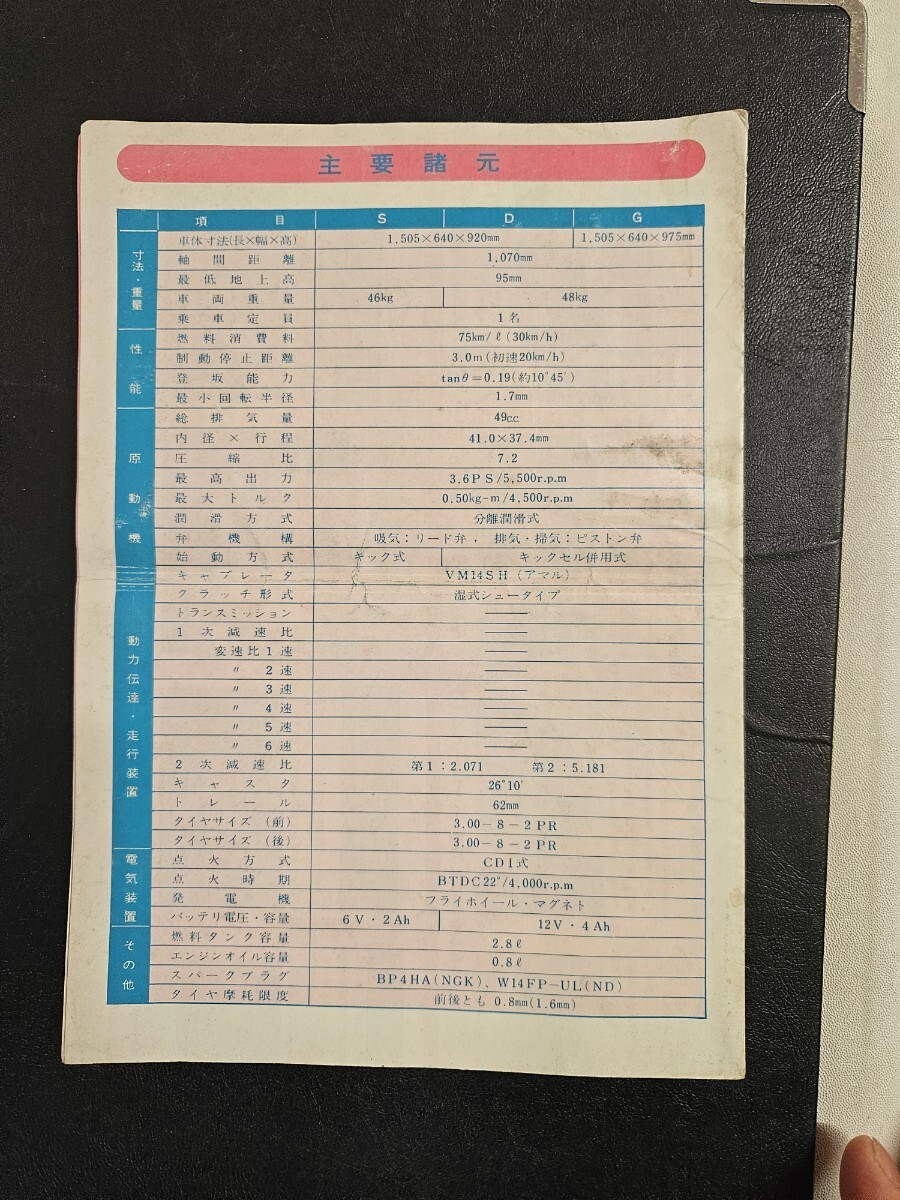 主要諸元
項目 S D G
寸法・重量
車体寸法(長×幅×高) 1,505×640×920mm 1,505×640×975mm
軸間距離 1,070mm
最低地上高 95mm
車両重量 46kg 48kg
乗車定員 1名
性能
燃料消費料 75km/ℓ(30km/h)
制動停止距離 3.0m(初速20km/h)
登坂能力 tanθ=0.19(約10°45′)
最小回転半径 1.7mm
原動機
総排気量 49c.c.
内径×行程 41.0×37.4mm
圧縮比 7.2
最高出力 3.6PS/5,500r.p.m
最大トルク 0.50kg-m/4,500r.p.m
潤滑方式 分離潤滑式
弁機構 吸気:リード弁, 排気・掃気:ピストン弁
始動方式 キック式 キックセル併用式
キャブレータ VM14SH(アマル)
動力伝達・走行装置
クラッチ形式 湿式シュータイプ
トランスミッション ――
1次減速比 ――
変速比1速 ――
〃 2速 ――
〃 3速 ――
〃 4速 ――
〃 5速 ――
〃 6速 ――
2次減速比 第1:2.071 第2:5.181
キャスタ 26°10′
トレール 62mm
タイヤサイズ(前) 3.00-8-2PR
タイヤサイズ(後) 3.00-8-2PR
電気装置
点火方式 CDI式
点火時期 BTDC22°/4,000r.p.m
発電機 フライホイール・マグネト
バッテリ電圧・容量 6V・2Ah 12V・4Ah
その他
燃料タンク容量 2.8ℓ
エンジンオイル容量 0.8ℓ
スパークプラグ BP4HA(NGK)、W14FP-UL(ND)
タイヤ摩耗限度 前後とも 0.8mm(1.6mm)